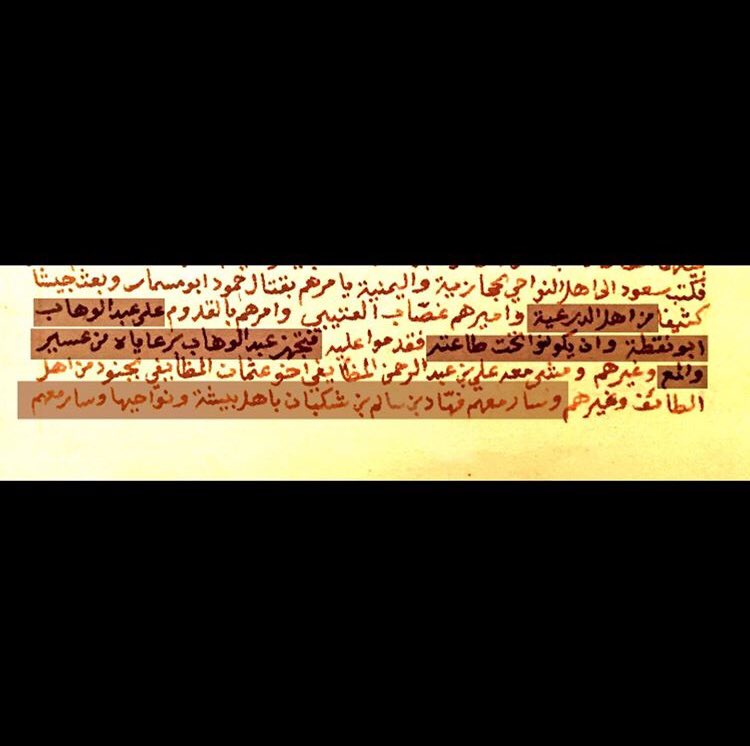 فكتب سعود الى اهل النواحي الحجازية واليمنية يامرهم بقتال حمود ابو مسمار وبعث جيشا
كثيفا من اهل الدرعية واميرهم غصّاب العتيبي وامرهم بالقدوم على عبد الوهاب
ابو نقطة وان يكونوا تحت طاعته فقدموا عليه فتجهز عبد الوهاب برعاياه من عسير
والمع وغيرهم ومشى معه علي بن عبد الرحمن المضايفي اخو عثمان المضايفي بجنود من اهل
الطائف وغيرهم وسار معهم فهّاد بن سالم بن شكبان باهل بيشة ونواحيها وسار معهم